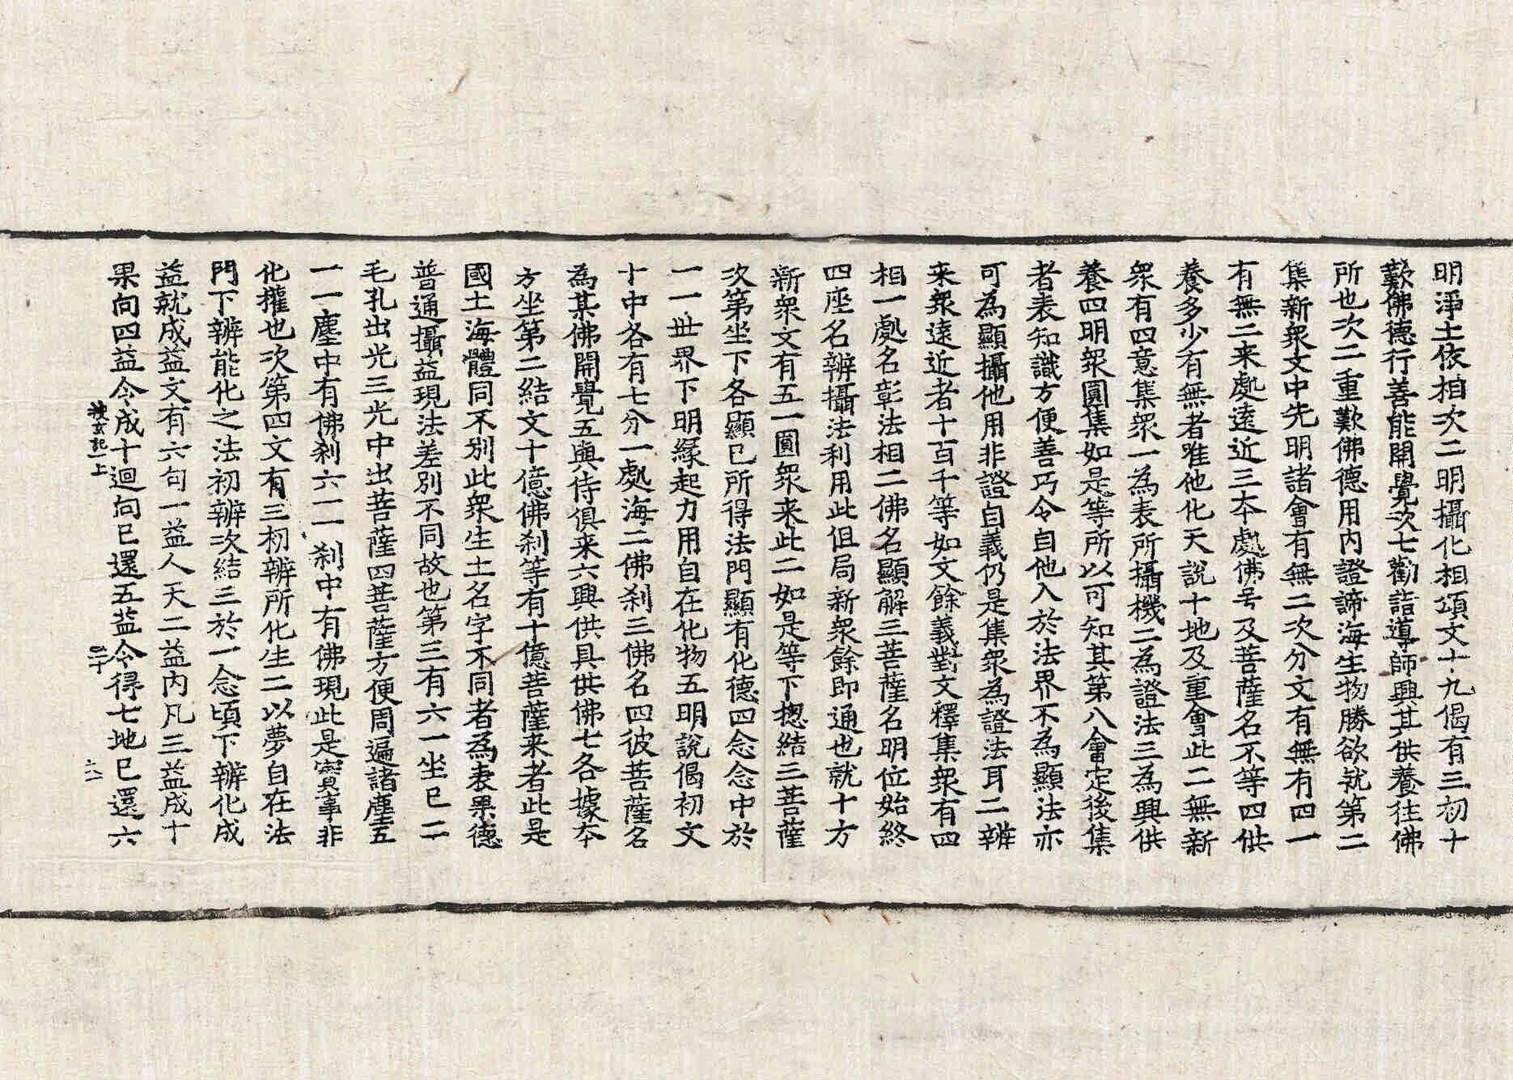 明淨土依相次二明攝化相頌文十九偈有三初十
歎佛德行善能開覺次七勸請導師興其供養往佛
所也次二重歎佛德用內證諦海生物勝欲就第二
集新衆文中先明諸會有無二次分文有無有四一
有無二来處遠近三本處佛号及菩薩名不等四供
養多少有無者唯他化天說十地及重會此二無新
衆有四意集衆一為表所攝機二為證法三為興供
養四明衆圓集如是等所以可知其第八會定後集
者表知識方便善巧令自他入於法界不為顯法亦
可為顯攝他用非證自義仍是集衆為證法耳二辨
来衆遠近者十百千等如文餘義對文釋集衆有四
相一處名彰法相二佛名顯解三菩薩名明位始終
四座名辨攝法利用此但局新衆餘即通也就十方
新衆文有五一圓衆来此二如是等下揔結三菩薩
次第坐下各顯已所得法門顯有化德四念念中於
一一世界下明緣起力用自在化物五明說偈初文
十中各有七分一處海二佛刹三佛名四彼菩薩名
為某佛開覺五與侍俱来六興供具供佛七各據本
方坐第二結文十億佛刹等有十億菩薩来者此是
國土海體同不別此衆生土名字不同者為表果德
普通攝益現法差別不同故也第三有六一坐已二
毛孔出光三光中出菩薩四菩薩方便周遍諸塵五
一一塵中有佛刹六一一刹中有佛現此是實事非
化權也次第四文有三初辨所化生二以夢自在法
門下辨能化之法初辨次結三於一念頃下辨化成
益就成益文有六句一益人天二益內凡三益成十
果向四益令成十迴向已還五益令得七地已還六
搜玄記一上 六